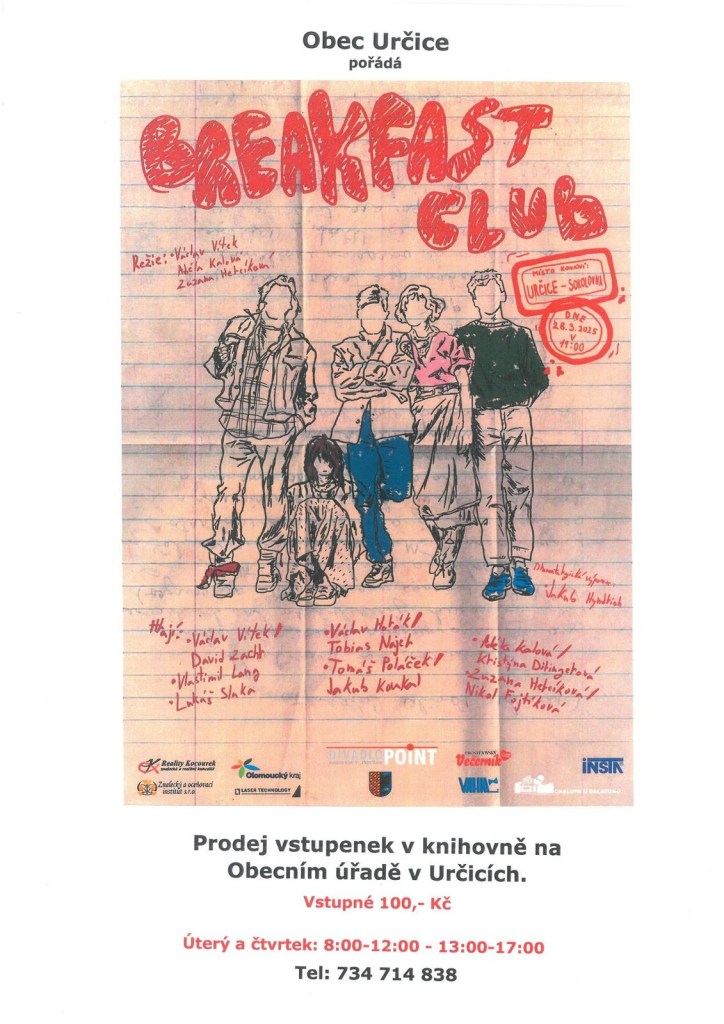 Obec Určice
pořádá
BREAKFAST
CLUB
Režie: • Václav Vítek
Adéla Kalová
Zuzana Hetsíková
Místo konání:
URČICE - SOKOLOVNA
DNE
28.3.2025
V
19:00
Dramaturgická výpomoc
Jakub Hyndrich
Hrají:
• Václav Vítek/
David Zacht
• Vlastimil Lang
• Lukáš Slaka
• Václav Haták/
Tobias Najet
• Tomáš Poláček/
Jakub Koukal
• Adéla Kalová/
Kristýna Ditingetová
• Zuzana Hetsíková/
Nikol Fojtíková
Reality Kocourek
Znalecký a oceňovací
institut s.r.o.
Olomoucký kraj
LASER TECHNOLOGY
DIVADLO POINT
PROSTĚJOVSKÝ
Večerník
INSTA
Prodej vstupenek v knihovně na
Obecním úřadě v Určicích.
Vstupné 100,- Kč
Úterý a čtvrtek: 8:00-12:00 - 13:00-17:00
Tel: 734 714 838